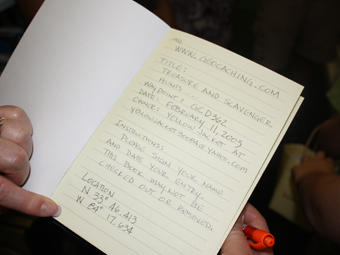 WWW.GEOCACHING.COM
TITLE:
TREASURE AND SCAVENGER
HUNTS
WAYPOINT: GCD362
DATE: FEBRUARY 11, 2003
YELLOW JACKET AT
YELLOWJACKET
@YAHOO.COM
INSTRUCTIONS:
PLEASE SIGN YOUR NAME
AND DATE YOUR ENTRY.
THIS BOOK MAY NOT BE
CHECKED OUT OR REMOVED.
LOCATION
N 33° 46.413
W 84° 17.654